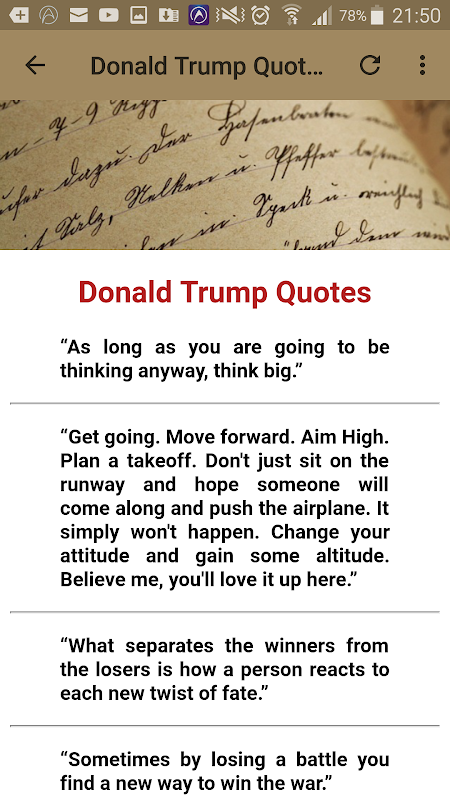 78% 21:50
Donald Trump Quot...
7-9
ufer dazu. Der Hasenbraten
Salz, Nelken u. Pfeffer
in. Speck u. reichlich
dem
Donald Trump Quotes
“As long as you are going to be
thinking anyway, think big.”
“Get going. Move forward. Aim High.
Plan a takeoff. Don't just sit on the
runway and hope someone will
come along and push the airplane. It
simply won't happen. Change your
attitude and gain some altitude.
Believe me, you'll love it up here.”
“What separates the winners from
the losers is how a person reacts to
each new twist of fate.”
“Sometimes by losing a battle you
find a new way to win the war.”